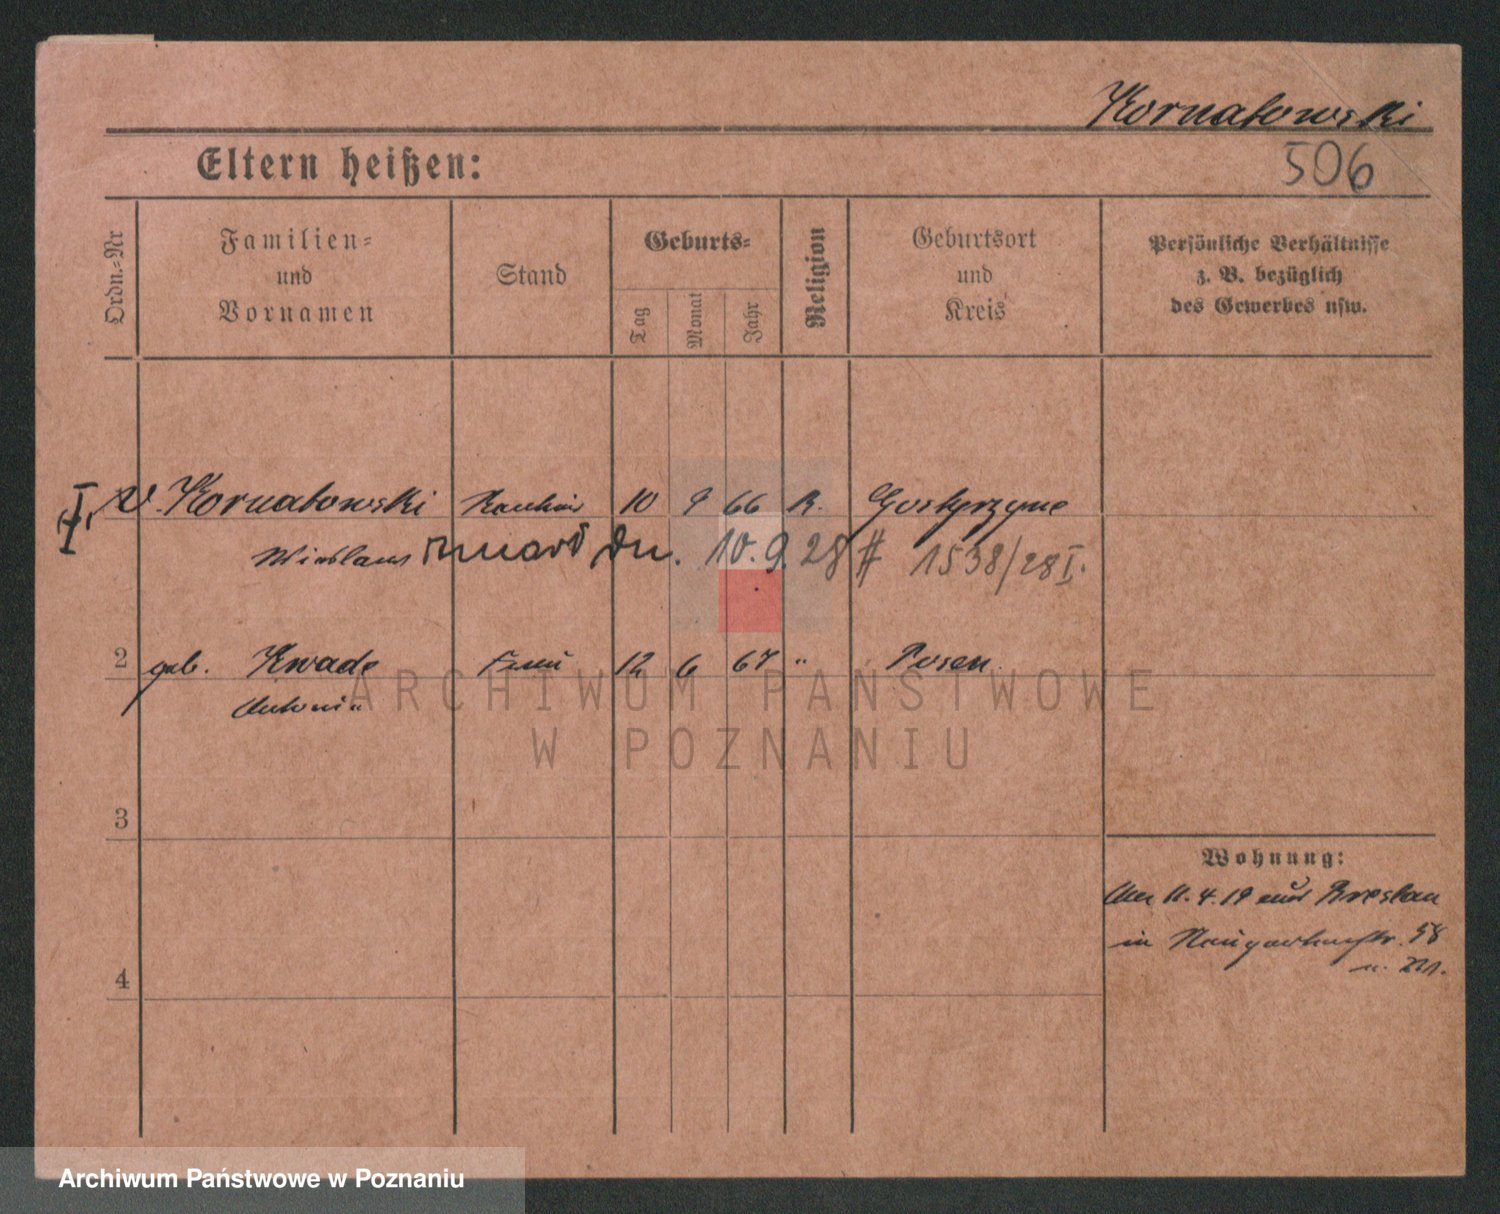 Kornatowski
Eltern heißen:
506
Ordn.-Nr
Familien-
und
Vornamen
Stand
Geburts-
Tag
Monat
Jahr
Religion
Geburtsort
und
Kreis
Persönliche Verhältnisse
z. B. bezüglich
des Gewerbes usw.
I. v. Kornatowski 10 9 66 K.
zmarł dn. 10.9.28 # 1538/28 I.
2 geb. Kwade Frau 12 6 67 " Posen
Antonia
ARCHIWUM PAŃSTWOWE
W POZNANIU
3
Wohnung:
11.4.19 aus Breslau
in 58
4
Archiwum Państwowe w Poznaniu